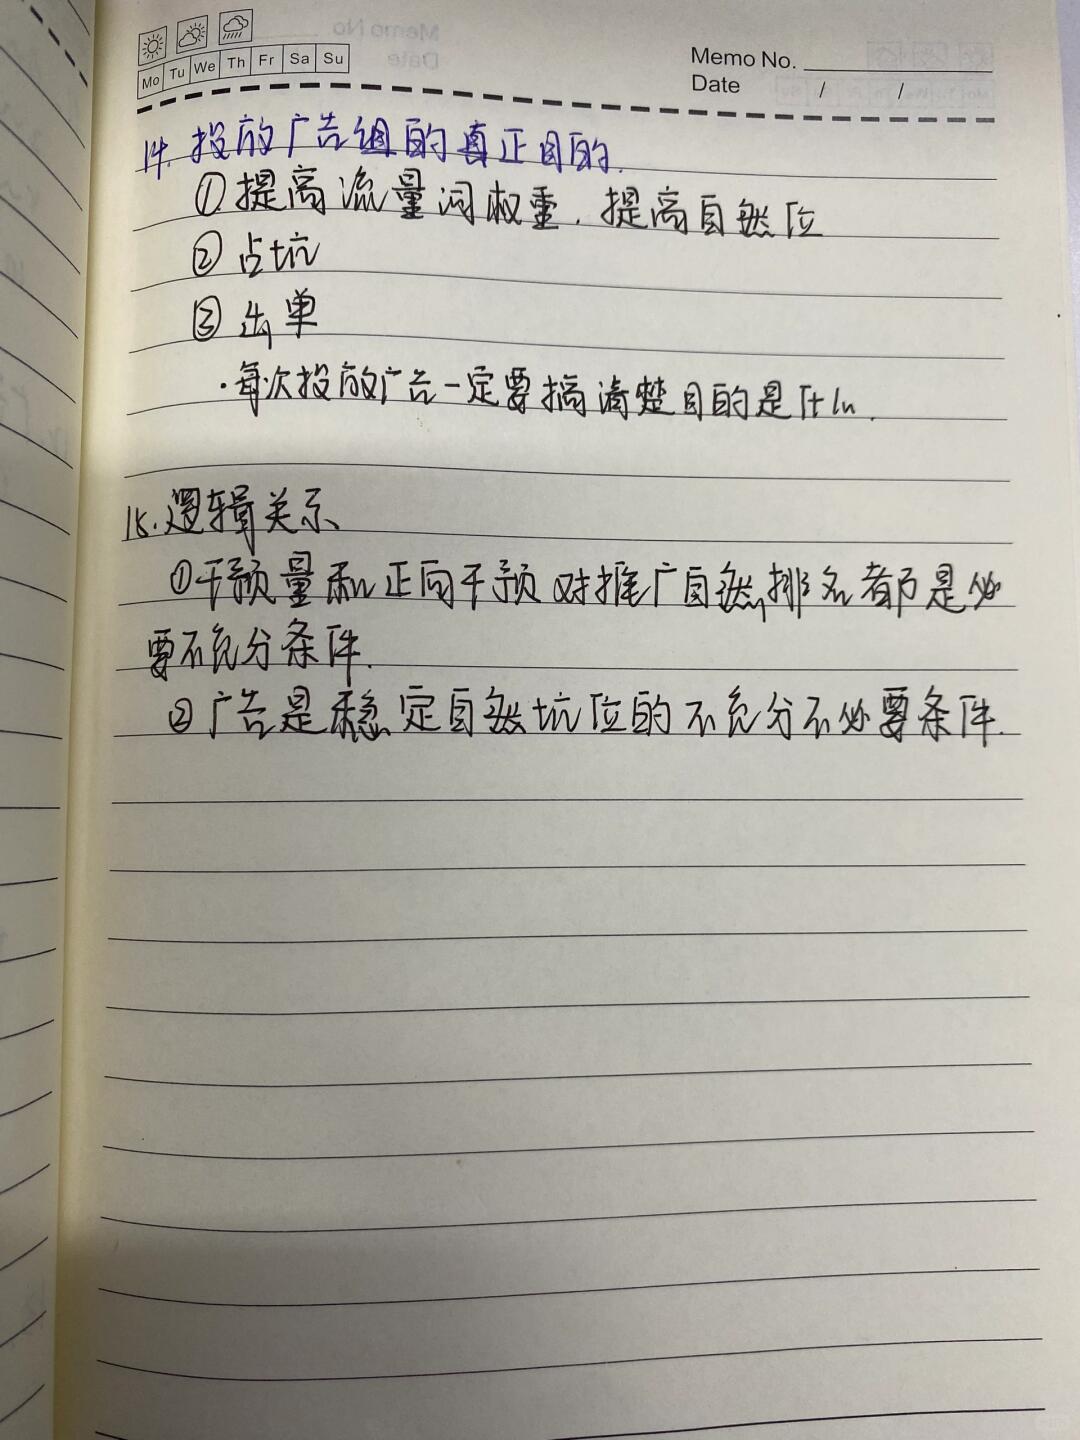 Mo Tu We Th Fr Sa Su
Memo No.
Date / /
14. 投放广告组的真正目的.
①提高流量词权重，提高自然位
②占坑
③出单
·每次投放广告一定要搞清楚目的是什么.
15.逻辑关系
①干预量和正向干预对推广自然排名都是必
要不充分条件.
②广告是稳定自然坑位的不充分不必要条件.